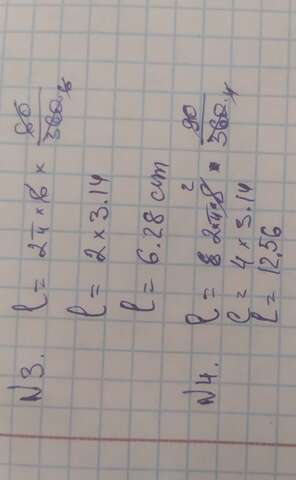 N3. l = 2π × 6 × 60/360 6
l = 2 × 3.14
l = 6.28 cm
N4. l = 8 2π × 8 2 · 90/360 4
l = 4 × 3.14
l = 12.56